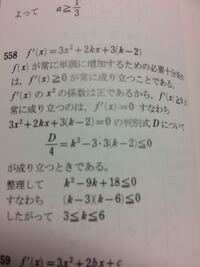 よって a≧1/3
558 f′(x)=3x²+2kx+3(k−2)
f(x)が常に単調に増加するための必要十分条件
は，f′(x)≧0 が常に成り立つことである。
f′(x) の x² の係数は正であるから，f′(x)≧0 が
常に成り立つのは，f′(x)=0 すなわち
3x²+2kx+3(k−2)=0 の判別式 D について
D/4=k²−3·3(k−2)≦0
が成り立つときである。
整理して k²−9k+18≦0
すなわち (k−3)(k−6)≦0
したがって 3≦k≦6
59 f′(x)=3x²+2bx+c